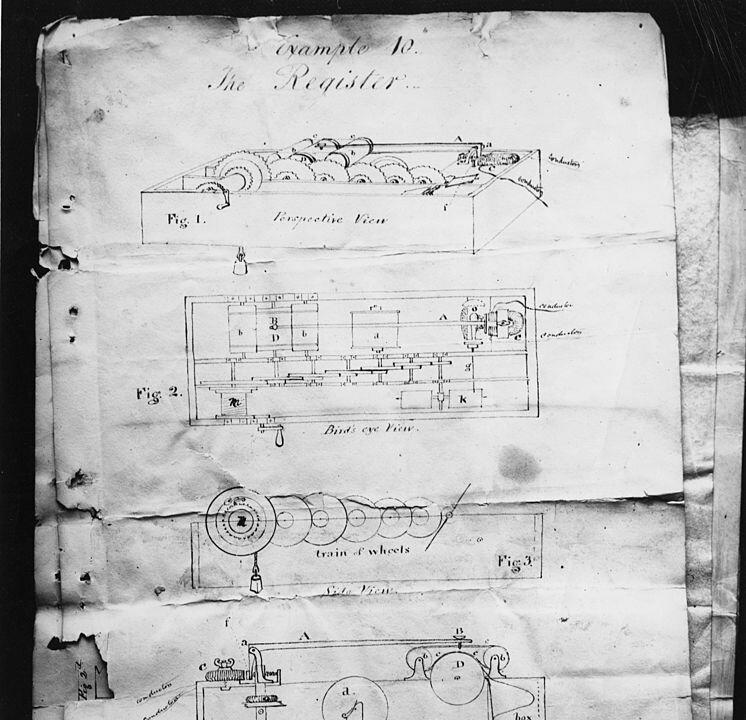 Example 10.
The Register.
c c A a
b
conductor
conductor
D
f
Fig. 1. Perspective View
conductor
B A
b D b d
conductor
g
Fig. 2. m k
Bird's eye View.
train of wheels
Fig 3.
Side View.
f
a A B
c b c c b
D
conductor
conductor
a
box
Fig 2d